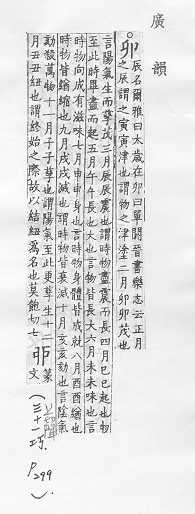 廣韻
卯 辰名爾雅曰太歲在卯曰單閼晉書樂志云正月
之辰謂之寅寅津也謂物之津塗二月卯卯茂也
言陽氣生而孳茂三月辰辰震也謂時物盡震而長四月巳巳起也物
至此時畢盡而起五月午午長也大也言物皆長大六月未未味也言
時物向成有滋味七月申申身也言時物身體皆成就八月酉酉緧也
時物皆緧縮也九月戌戌滅也謂時物皆衰滅十月亥亥劾也言陰氣
劾殺萬物十一月子子孳也謂陽氣至此更孳生十二
月丑丑紐也謂終始之際故以結紐爲名也莫飽切七
篆文
上聲
(三十一巧.
P299).